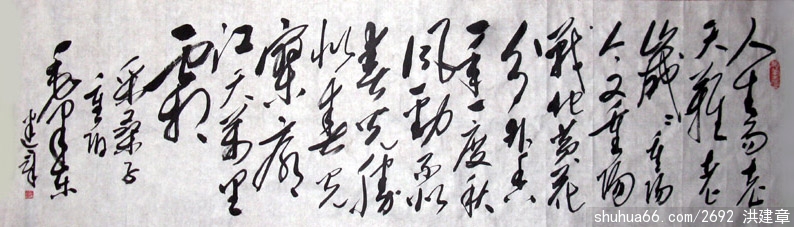 人生易老
天難老
歲々重陽
今又重陽
戰地黄花
分外香
一年一度秋
風勁不似
春光勝
似春光
寥廓
江天萬里
霜
采桑子
重陽
毛澤東
建章
shuhua66.com/2692 洪建章